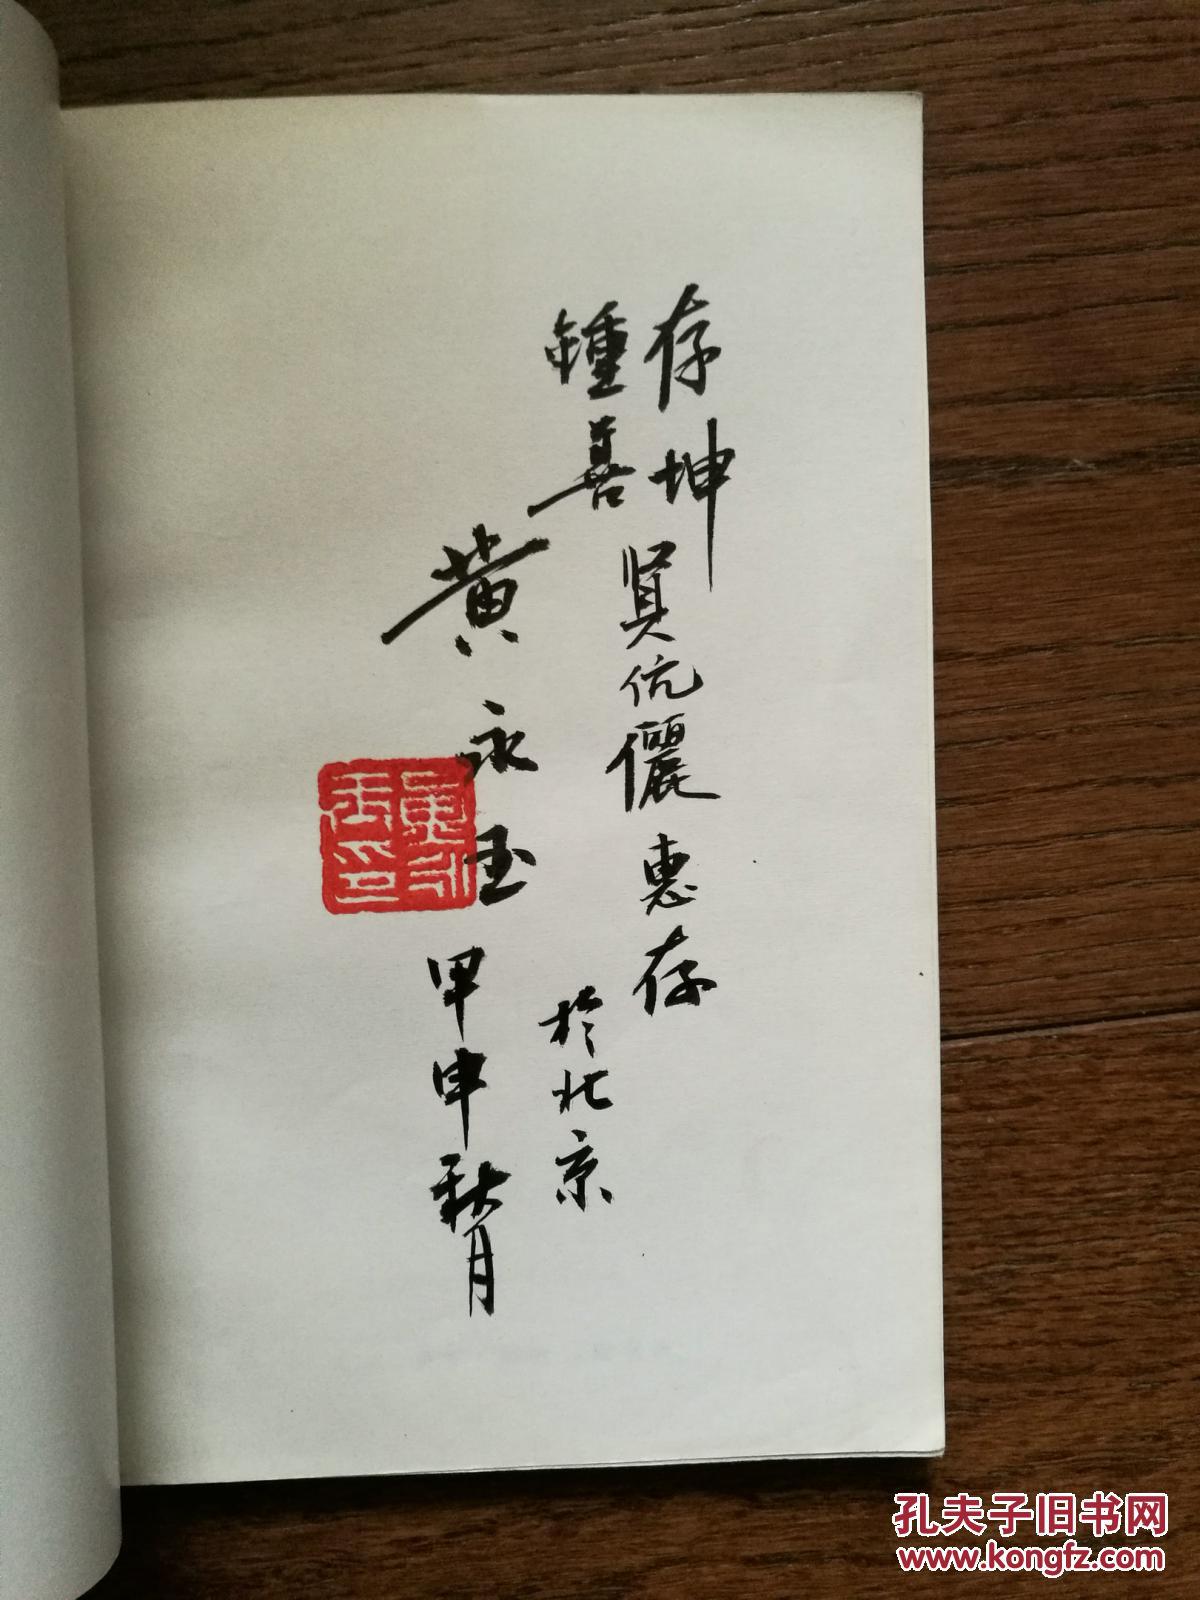 存坤
鍾善
贤伉儷惠存
黄永玉
於北京
甲申秋月
黄永玉印
孔夫子旧书网
www.kongfz.com